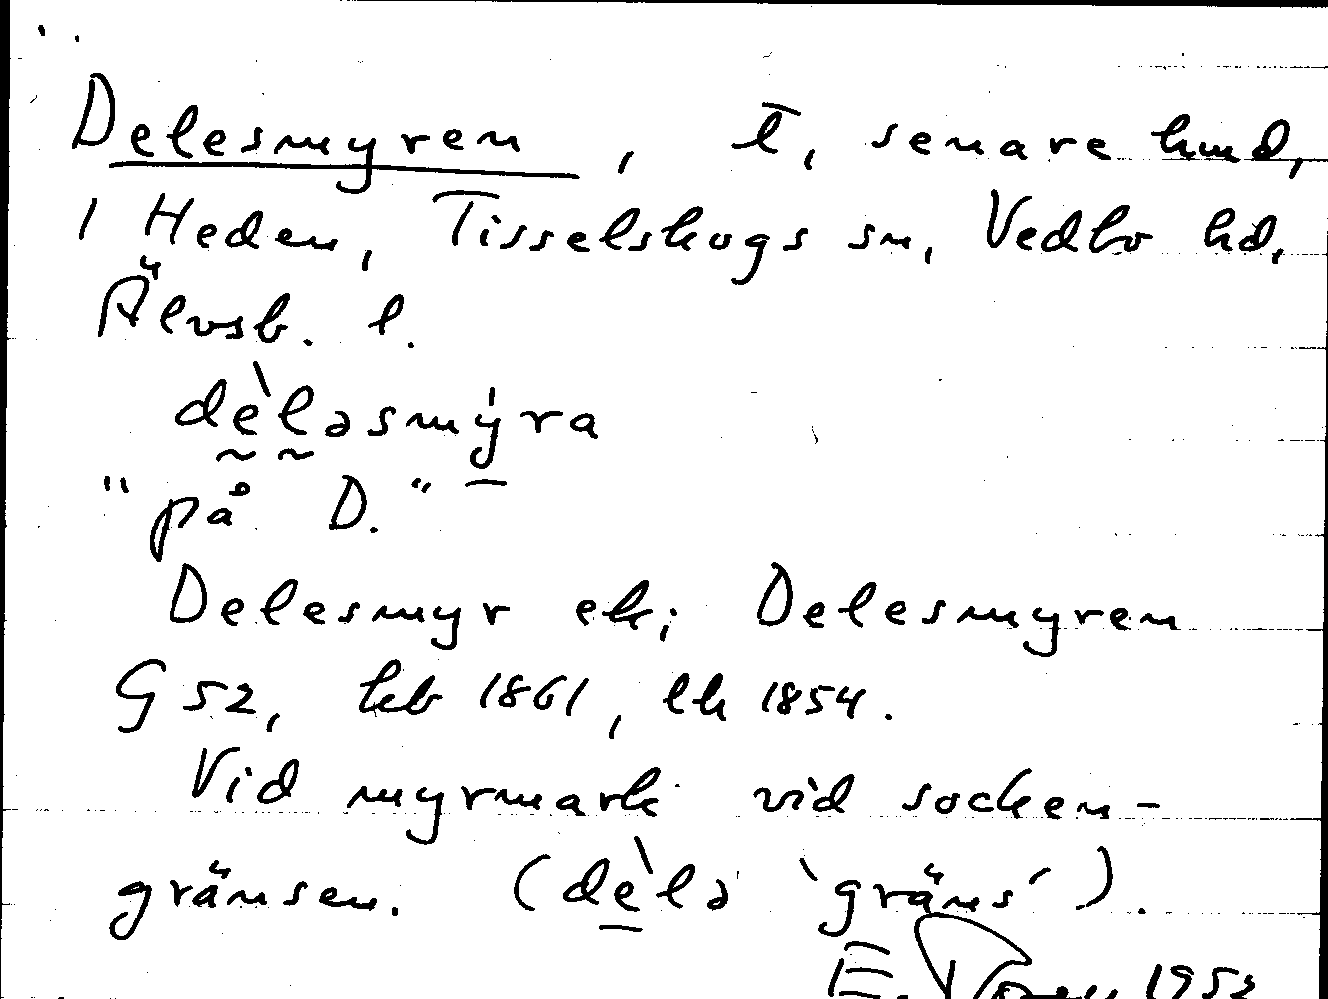 Delesmyren, t, senare hmd,
1 Heden, Tisselskogs sn, Vedbo hd,
Älvsb. l.
dè̀ləsmýra
"på D."
Delesmyr ek; Delesmyren
G 52, hkb 1861, lk 1854.
Vid myrmark vid socken-
gränsen. (dèlə 'gräns').
E. 1953